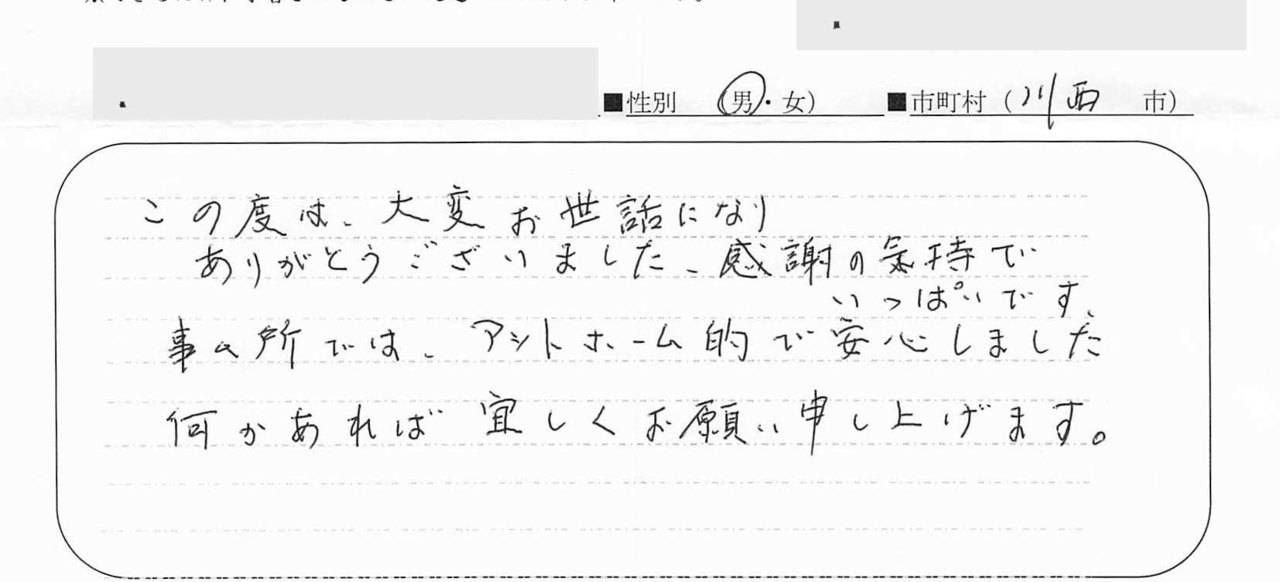 ■性別 (男・女) ■市町村(川西 市)
この度は、大変お世話になり
ありがとうございました、感謝の気持で
いっぱいです、
事ム所では、アットホーム的で安心しました
何かあれば宜しくお願い申し上げます。